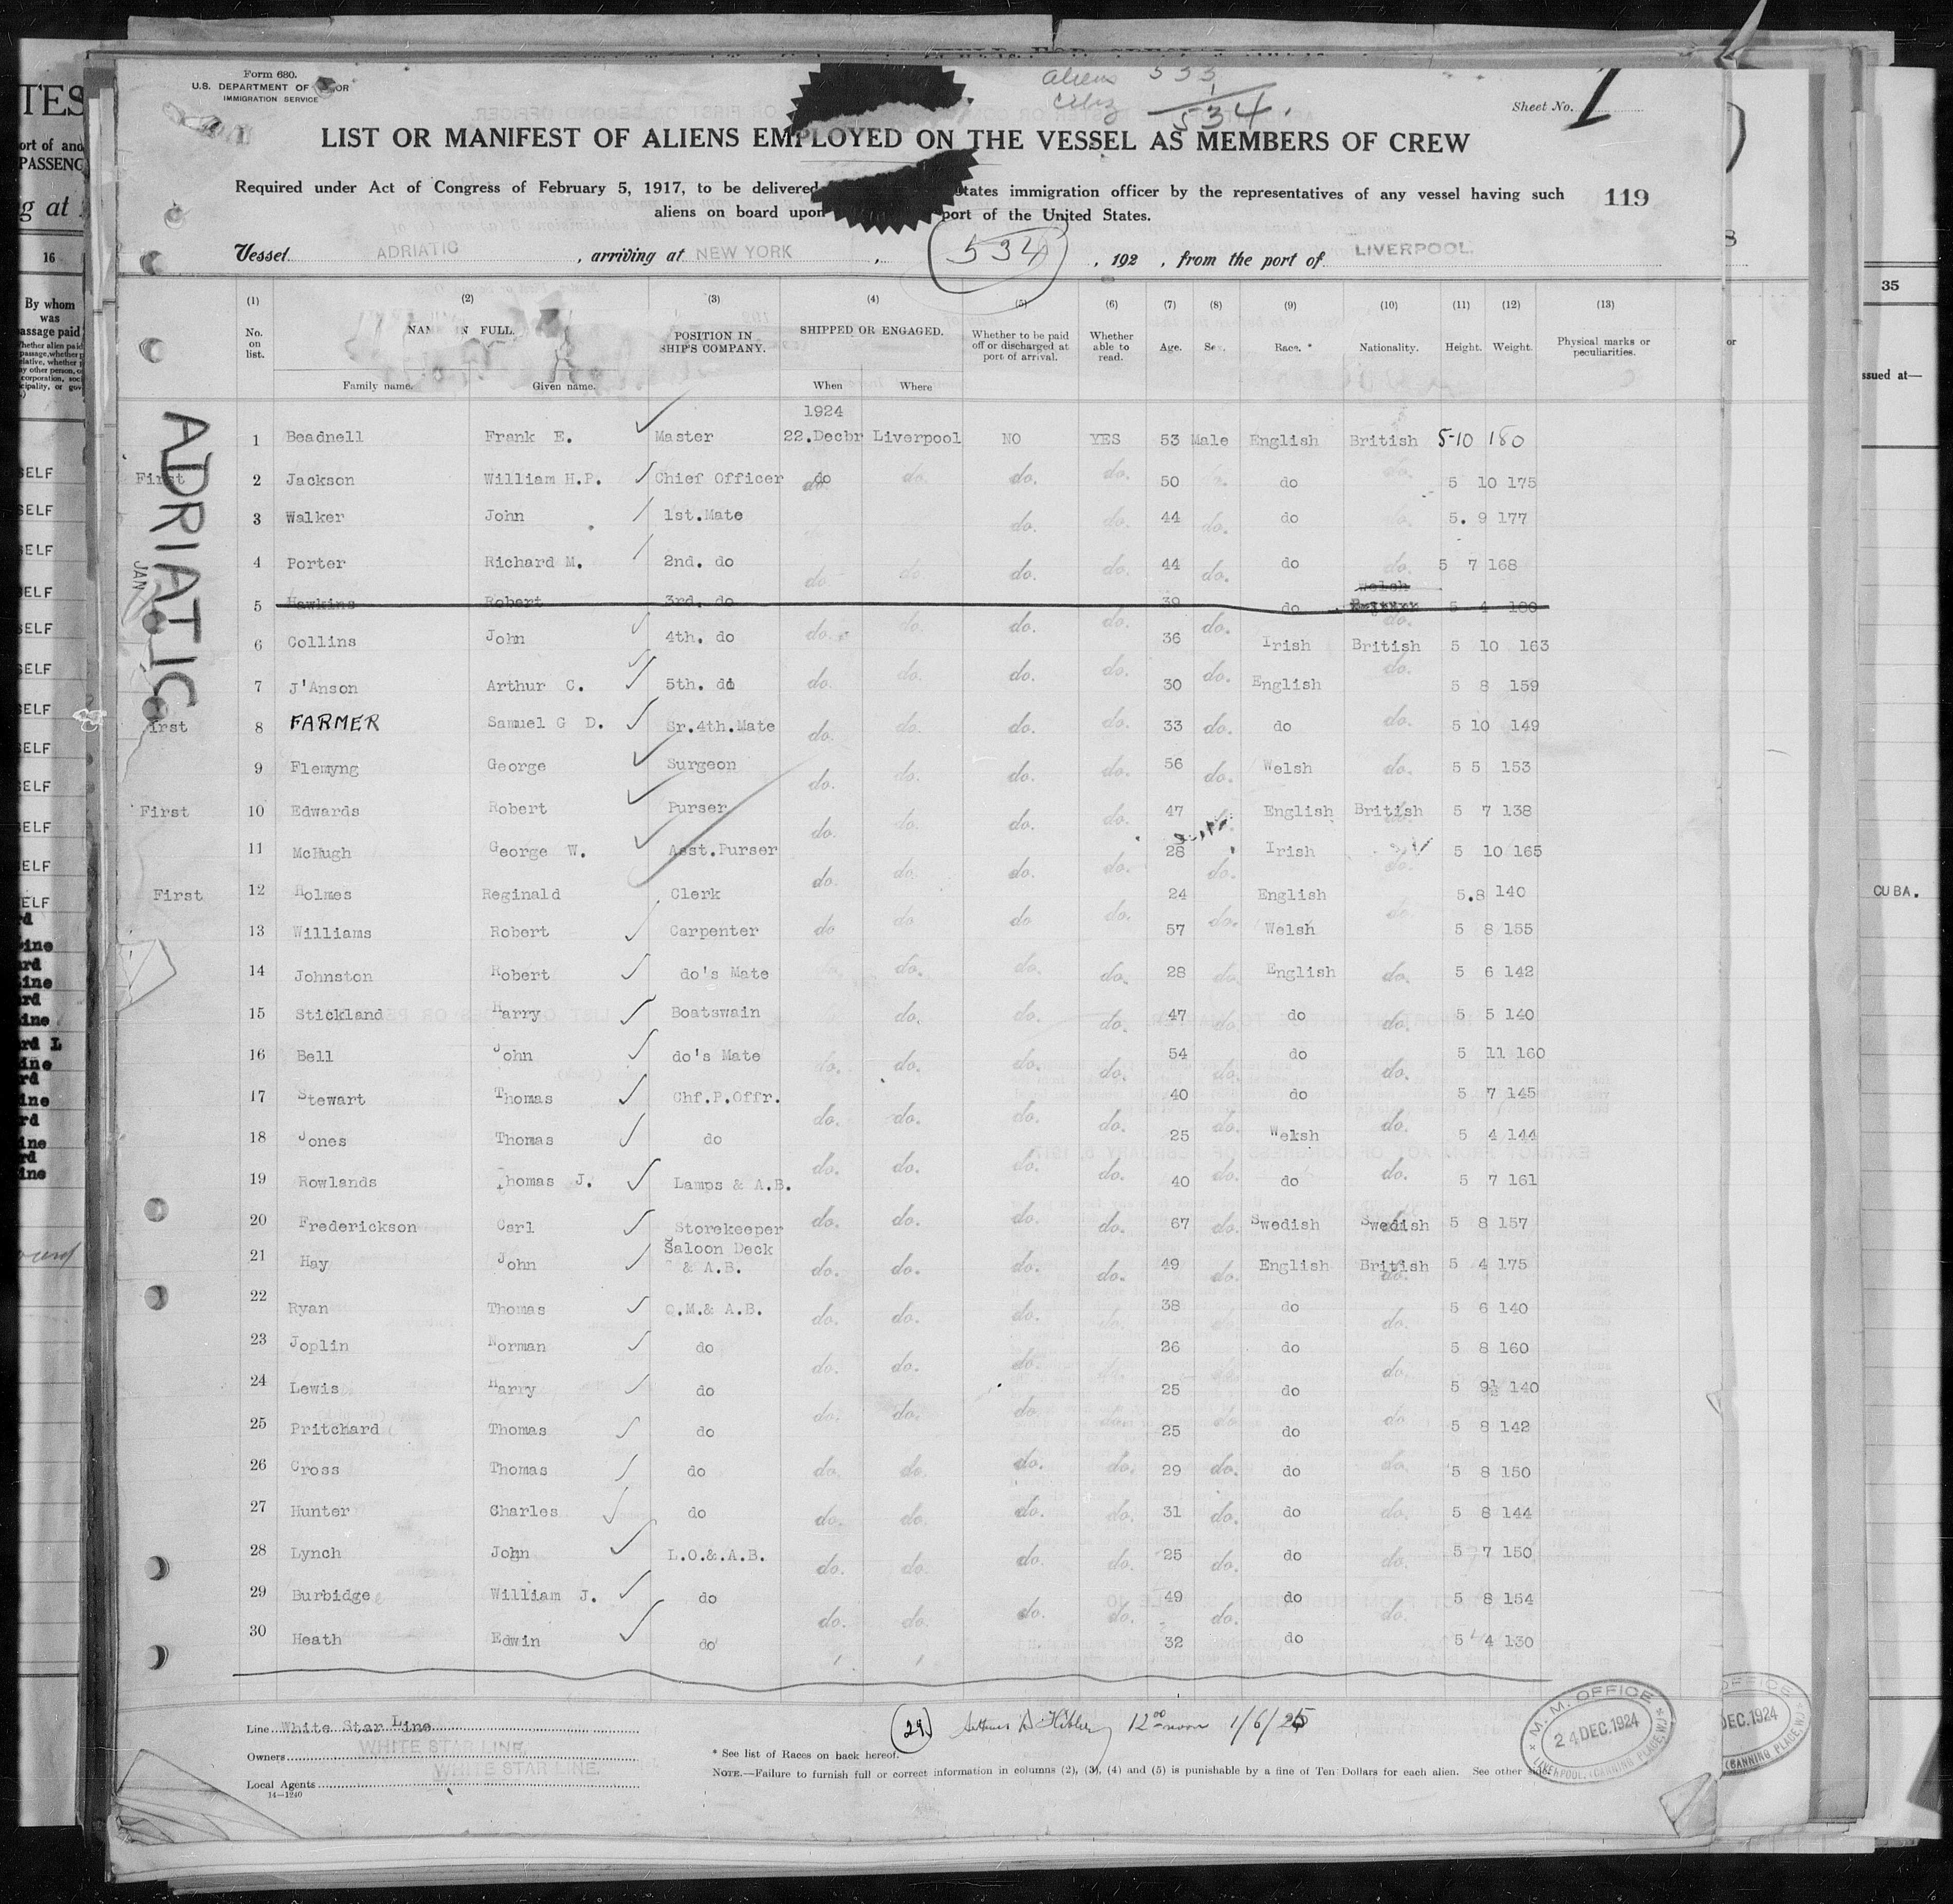 Form 680.
U.S. DEPARTMENT OF
IMMIGRATION SERVICE
Aliens 533
1
534
Sheet No. 1
LIST OR MANIFEST OF ALIENS EMPLOYED ON THE VESSEL AS MEMBERS OF CREW
Required under Act of Congress of February 5, 1917, to be delivered States immigration officer by the representatives of any vessel having such
aliens on board upon port of the United States.
119
Vessel ADRIATIC , arriving at NEW YORK , 534 , 192 , from the port of LIVERPOOL.
(1) (2) (3) (4) (5) (6) (7) (8) (9) (10) (11) (12) (13)
No. on list. NAME IN FULL. POSITION IN SHIP'S COMPANY. SHIPPED OR ENGAGED. Whether to be paid off or discharged at port of arrival. Whether able to read. Age. Sex. Race. * Nationality. Height. Weight. Physical marks or peculiarities.
Family name. Given name. When Where
1924
1 Beadnell Frank E. Master 22.Decbr Liverpool NO YES 53 Male English British 5-10 180
First 2 Jackson William H.P. Chief Officer do do. do. do. 50 do 5 10 175
3 Walker John 1st.Mate do. do. 44 do. do 5. 9 177
4 Porter Richard M. 2nd. do do do. do. do. 44 do. do do. 5 7 168
Welsh
5 Hawkins Robert 3rd. do 39 do 5 4 180
6 Collins John 4th. do do. do. do. do. 36 do. Irish British 5 10 163
7 J'Anson Arthur C. 5th. do do. do. do. do. 30 do. English do. 5 8 159
First 8 FARMER Samuel G D. Sr.4th.Mate do. do. do. do. 33 do. do do. 5 10 149
9 Flemyng George Surgeon do. do. do. do. 56 do. Welsh do. 5 5 153
First 10 Edwards Robert Purser do. do. do. do. 47 English British 5 7 138
11 McHugh George W. Asst.Purser do. do. do. do. 28 do. Irish do. 5 10 165
First 12 Holmes Reginald Clerk do. do. do. do. 24 English 5.8 140
13 Williams Robert Carpenter do do do do. 57 do. Welsh do. 5 8 155
14 Johnston Robert do's Mate do. do. do. 28 do English do. 5 6 142
15 Stickland Harry Boatswain do. do. do. 47 do. do do. 5 5 140
16 Bell John do's Mate do. do. do. do. 54 do. do do. 5 11 160
17 Stewart Thomas Chf.P.Offr. do. do. do. do. 40 do. do do. 5 7 145
18 Jones Thomas do do. do. do. do. 25 do. Welsh do. 5 4 144
19 Rowlands Thomas J. Lamps & A.B. do. do. do. do. 40 do. do do. 5 7 161
20 Frederickson Carl Storekeeper do. do. do. do. 67 do. Swedish Swedish 5 8 157
Saloon Deck
21 Hay John & A.B. do. do. do. do. 49 do. English British 5 4 175
22 Ryan Thomas Q.M.& A.B. do. do. do. do. 38 do. do do. 5 6 140
23 Joplin Norman do do. do. do. 26 do do. 5 8 160
24 Lewis Harry do do. do. do 25 do 5 9½ 140
25 Pritchard Thomas do 25 do do. 5 8 142
26 Cross Thomas do do. do. do. do. 29 do. do do. 5 8 150
27 Hunter Charles do do. do. do. do. 31 do. do do. 5 8 144
28 Lynch John L.O.&.A.B. do. do. do. do. 25 do. do do. 5 7 150
29 Burbidge William J. do do. do. do. do. 49 do. do do. 5 8 154
30 Heath Edwin do 32 do 5 4 130
ADRIATIC
JAN
Line White Star Line
Owners WHITE STAR LINE.
Local Agents WHITE STAR LINE.
14—1240
29 12 00 noon 1/6/25
* See list of Races on back hereof.
NOTE.—Failure to furnish full or correct information in columns (2), (3), (4) and (5) is punishable by a fine of Ten Dollars for each alien. See other side.
M. M. OFFICE
24 DEC.1924
LIVERPOOL. (CANNING PLACE, W.)
TES
PASSENG
g at
16
By whom
was
passage paid
SELF
35
ssued at—
CUBA.
DEC.1924
(CANNING PLACE, W.)